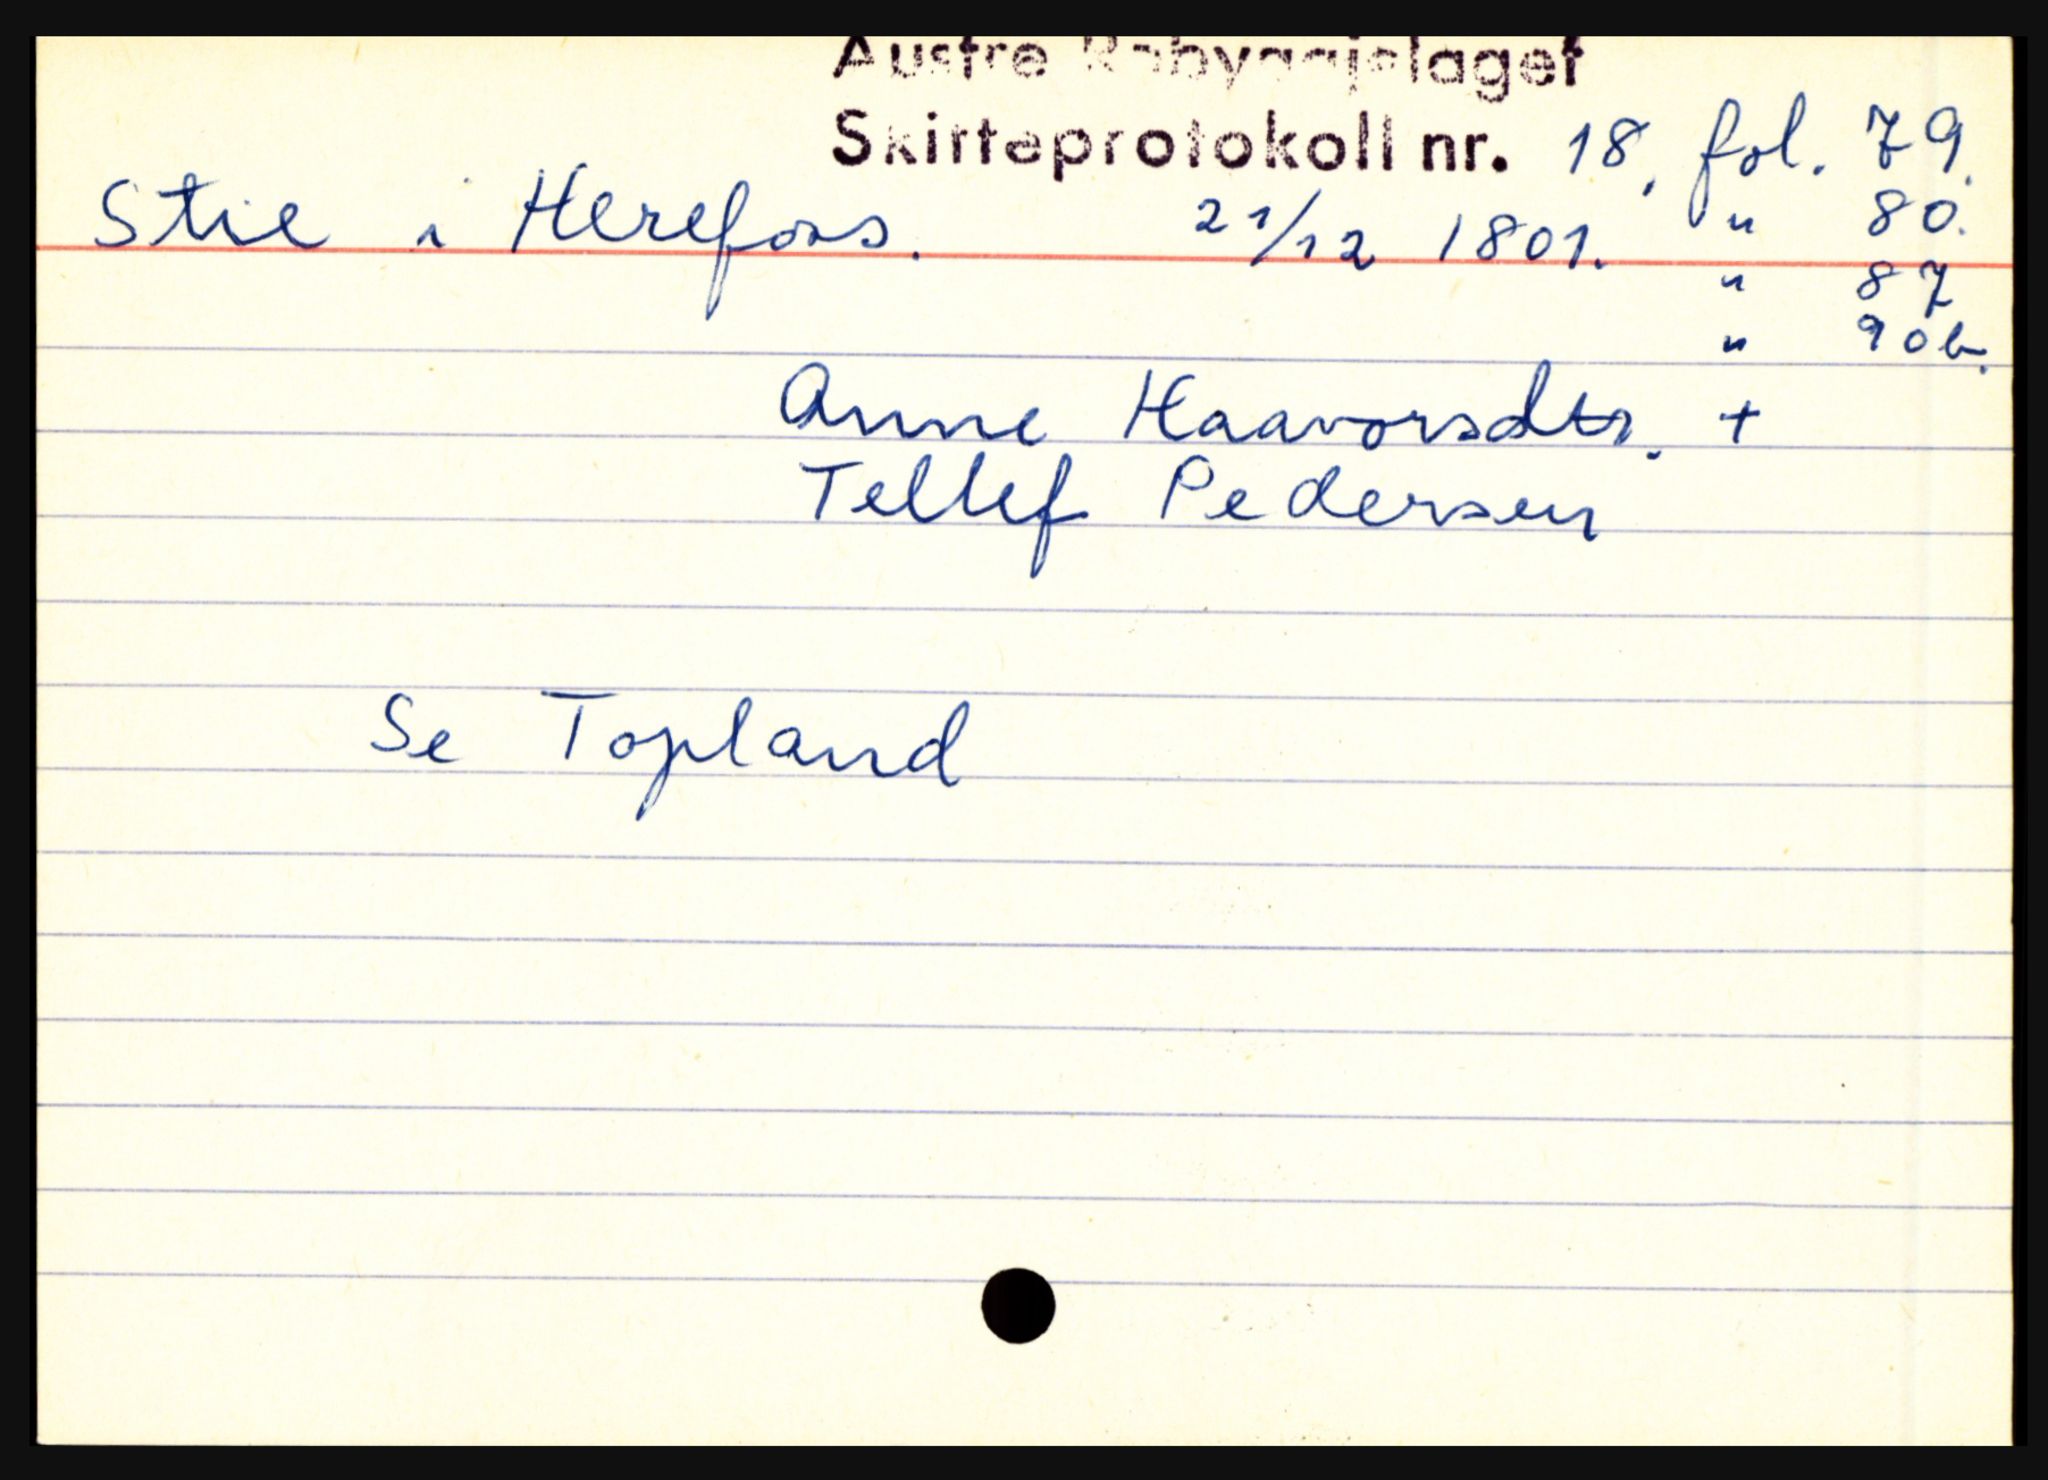 Austre Robyggjelaget
Skifteprotokoll nr. 18, fol. 79.
Stie i Herefoss. 21/12 1801. " 80.
" 87
" 90b.
Anne Haavorsdtr. +
Tellef Pedersen
Se Topland